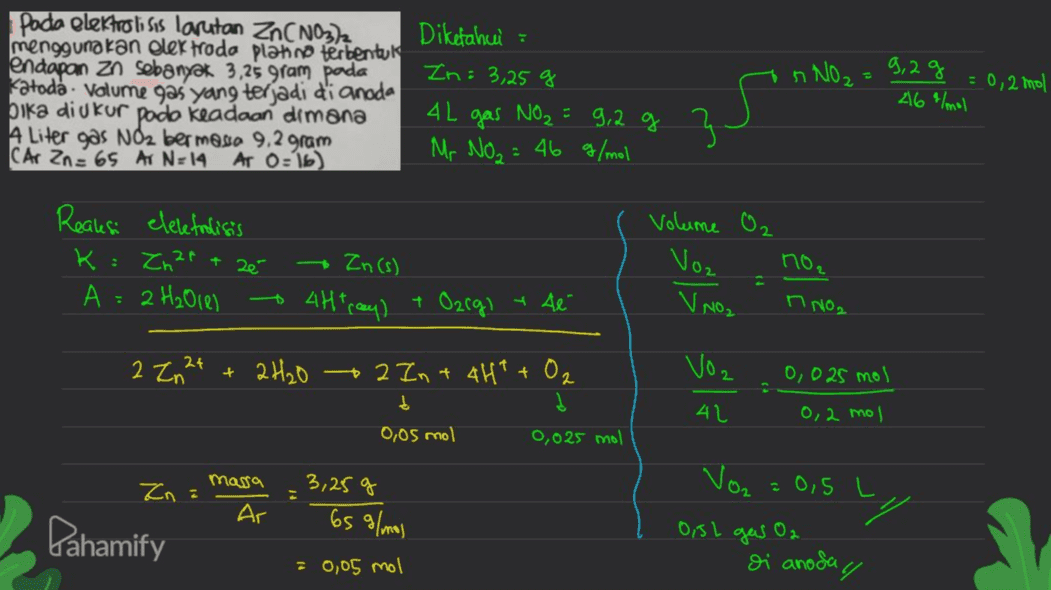 Pada elektrolisis larutan Zn(NO3)2
menggunakan elektroda platina terbentuk
endapan Zn sebanyak 3,25 gram pada
katoda. Volume gas yang terjadi di anoda
jika diukur pada keadaan dimana
4 Liter gas NO2 bermassa 9,2 gram
(Ar Zn = 65 Ar N = 14 Ar O = 16)
Diketahui :
Zn = 3,25 g
4L gas NO2 = 9,2 g
Mr NO2 = 46 g/mol
n NO2 = 9,2 g / 46 g/mol = 0,2 mol
Reaksi elektrolisis
K : Zn2+ + 2e- → Zn(s)
A : 2 H2O(l) → 4H+(aq) + O2(g) + 4e-
2 Zn2+ + 2H2O → 2 Zn + 4H+ + O2
0,05 mol 0,025 mol
Zn = massa / Ar = 3,25 g / 65 g/mol
= 0,05 mol
Volume O2
VO2 / VNO2 = nO2 / nNO2
VO2 / 4L = 0,025 mol / 0,2 mol
VO2 = 0,5 L
0,5L gas O2
di anoda
Pahamify